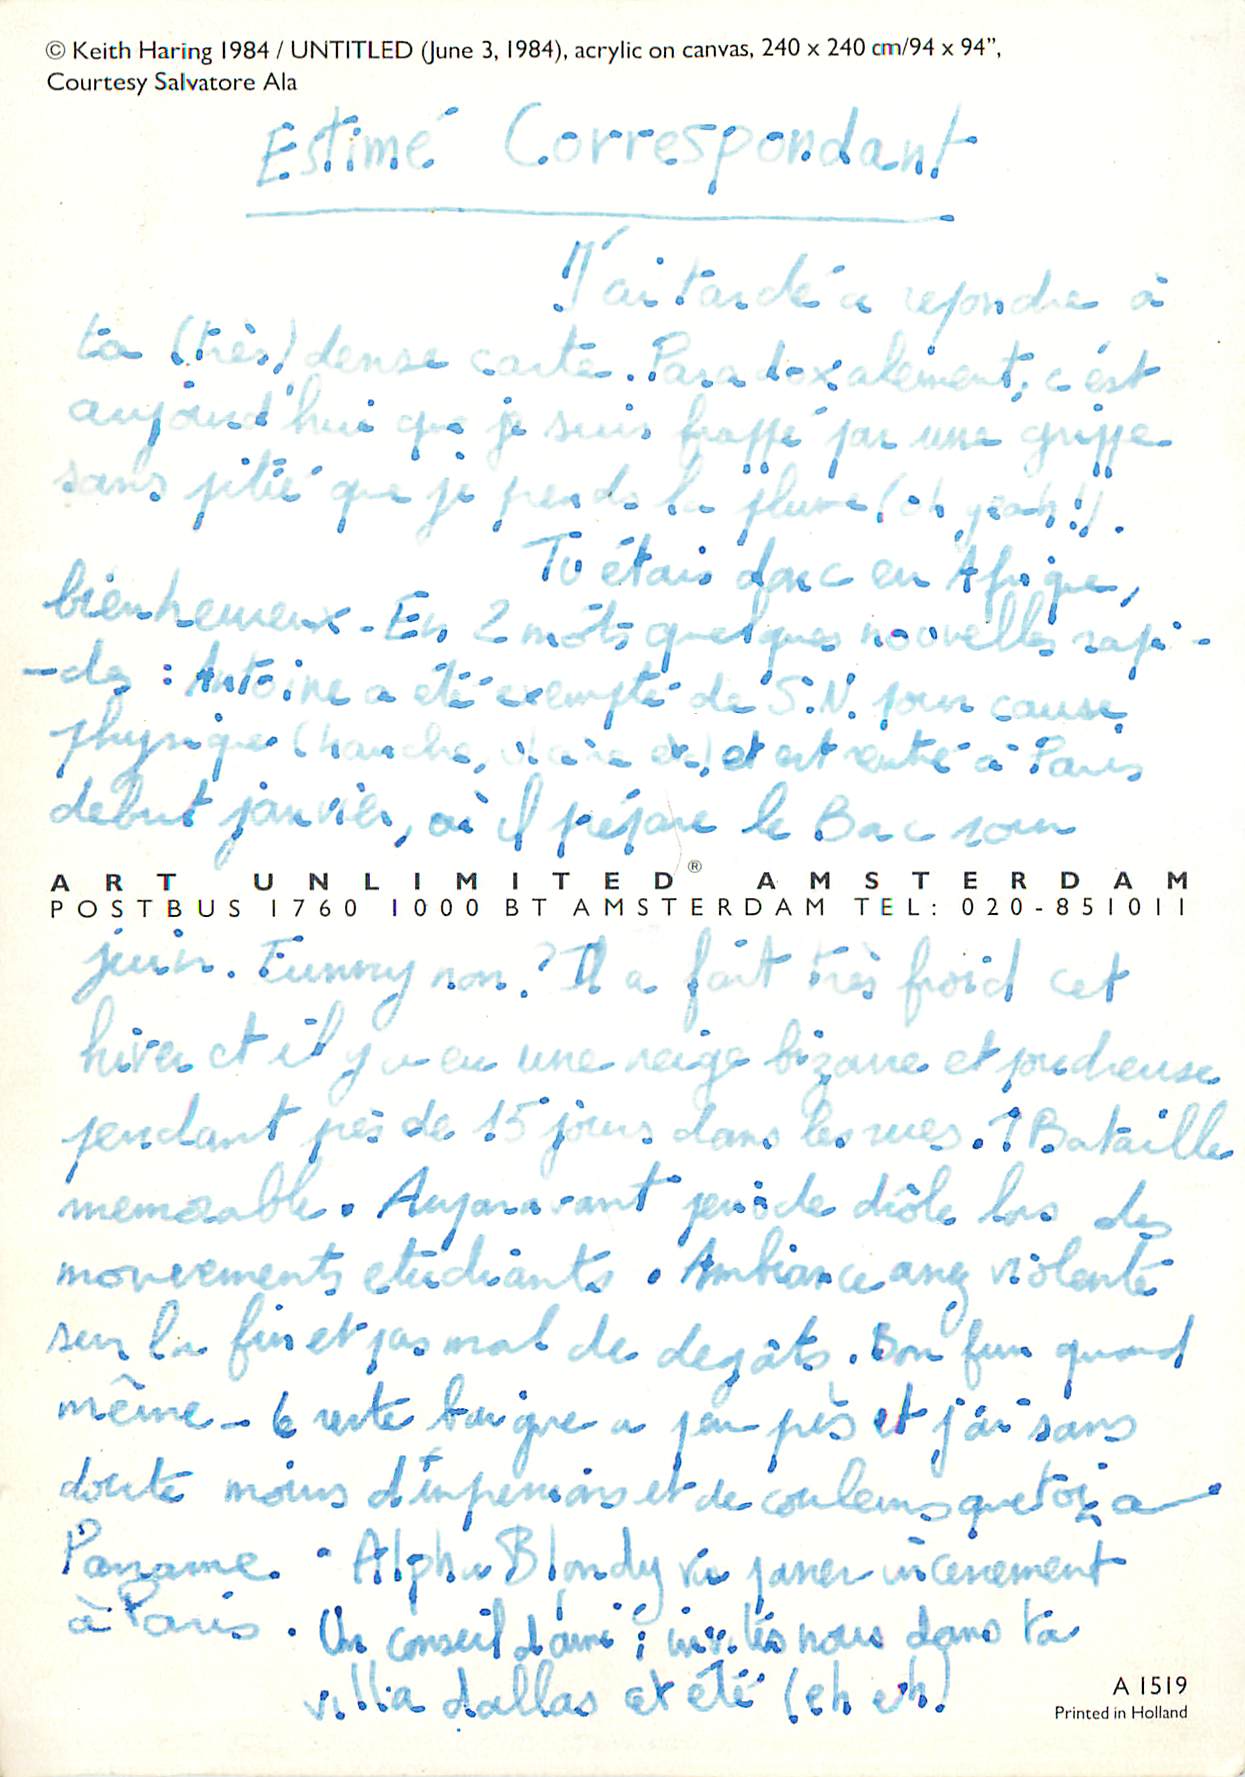 © Keith Haring 1984 / UNTITLED (June 3, 1984), acrylic on canvas, 240 x 240 cm/94 x 94”,
Courtesy Salvatore Ala
Estimé Correspondant
J'ai tardé a repondre à
ta (très) dense carte. Paradoxalement, c'est
aujourd'hui que je suis frappé par une grippe
sans pitié que je prends la plume (oh yeah!).
Tu étais donc en Afrique,
bienheureux - En 2 mots quelques nouvelles rapi-
-des : Antoine a été exempté de S.N. pour cause
physique (hanche, et est rentré à Paris
debut janvier, où il prépare le Bac pour
ART UNLIMITED® AMSTERDAM
POSTBUS 1760 1000 BT AMSTERDAM TEL: 020-851011
juin. Funny non? Il a fait très froid cet
hiver et il y a eu une neige bizarre et poudreuse
pendant près de 15 jours dans les rues. Bataille
memorable. Auparavant periode drôle lors des
mouvements etudiants. Ambiance assez violente
sur la fin et pas mal de degâts. Bon fun quand
même - le reste baigne a peu près et j'ai sans
doute moins d'impressions et de couleurs que toi a
Paname. Alpha Blondy va passer incessement
à Paris. Un conseil d'ami : invites nous dans ta
villa dallas et été (eh eh)
A 1519
Printed in Holland